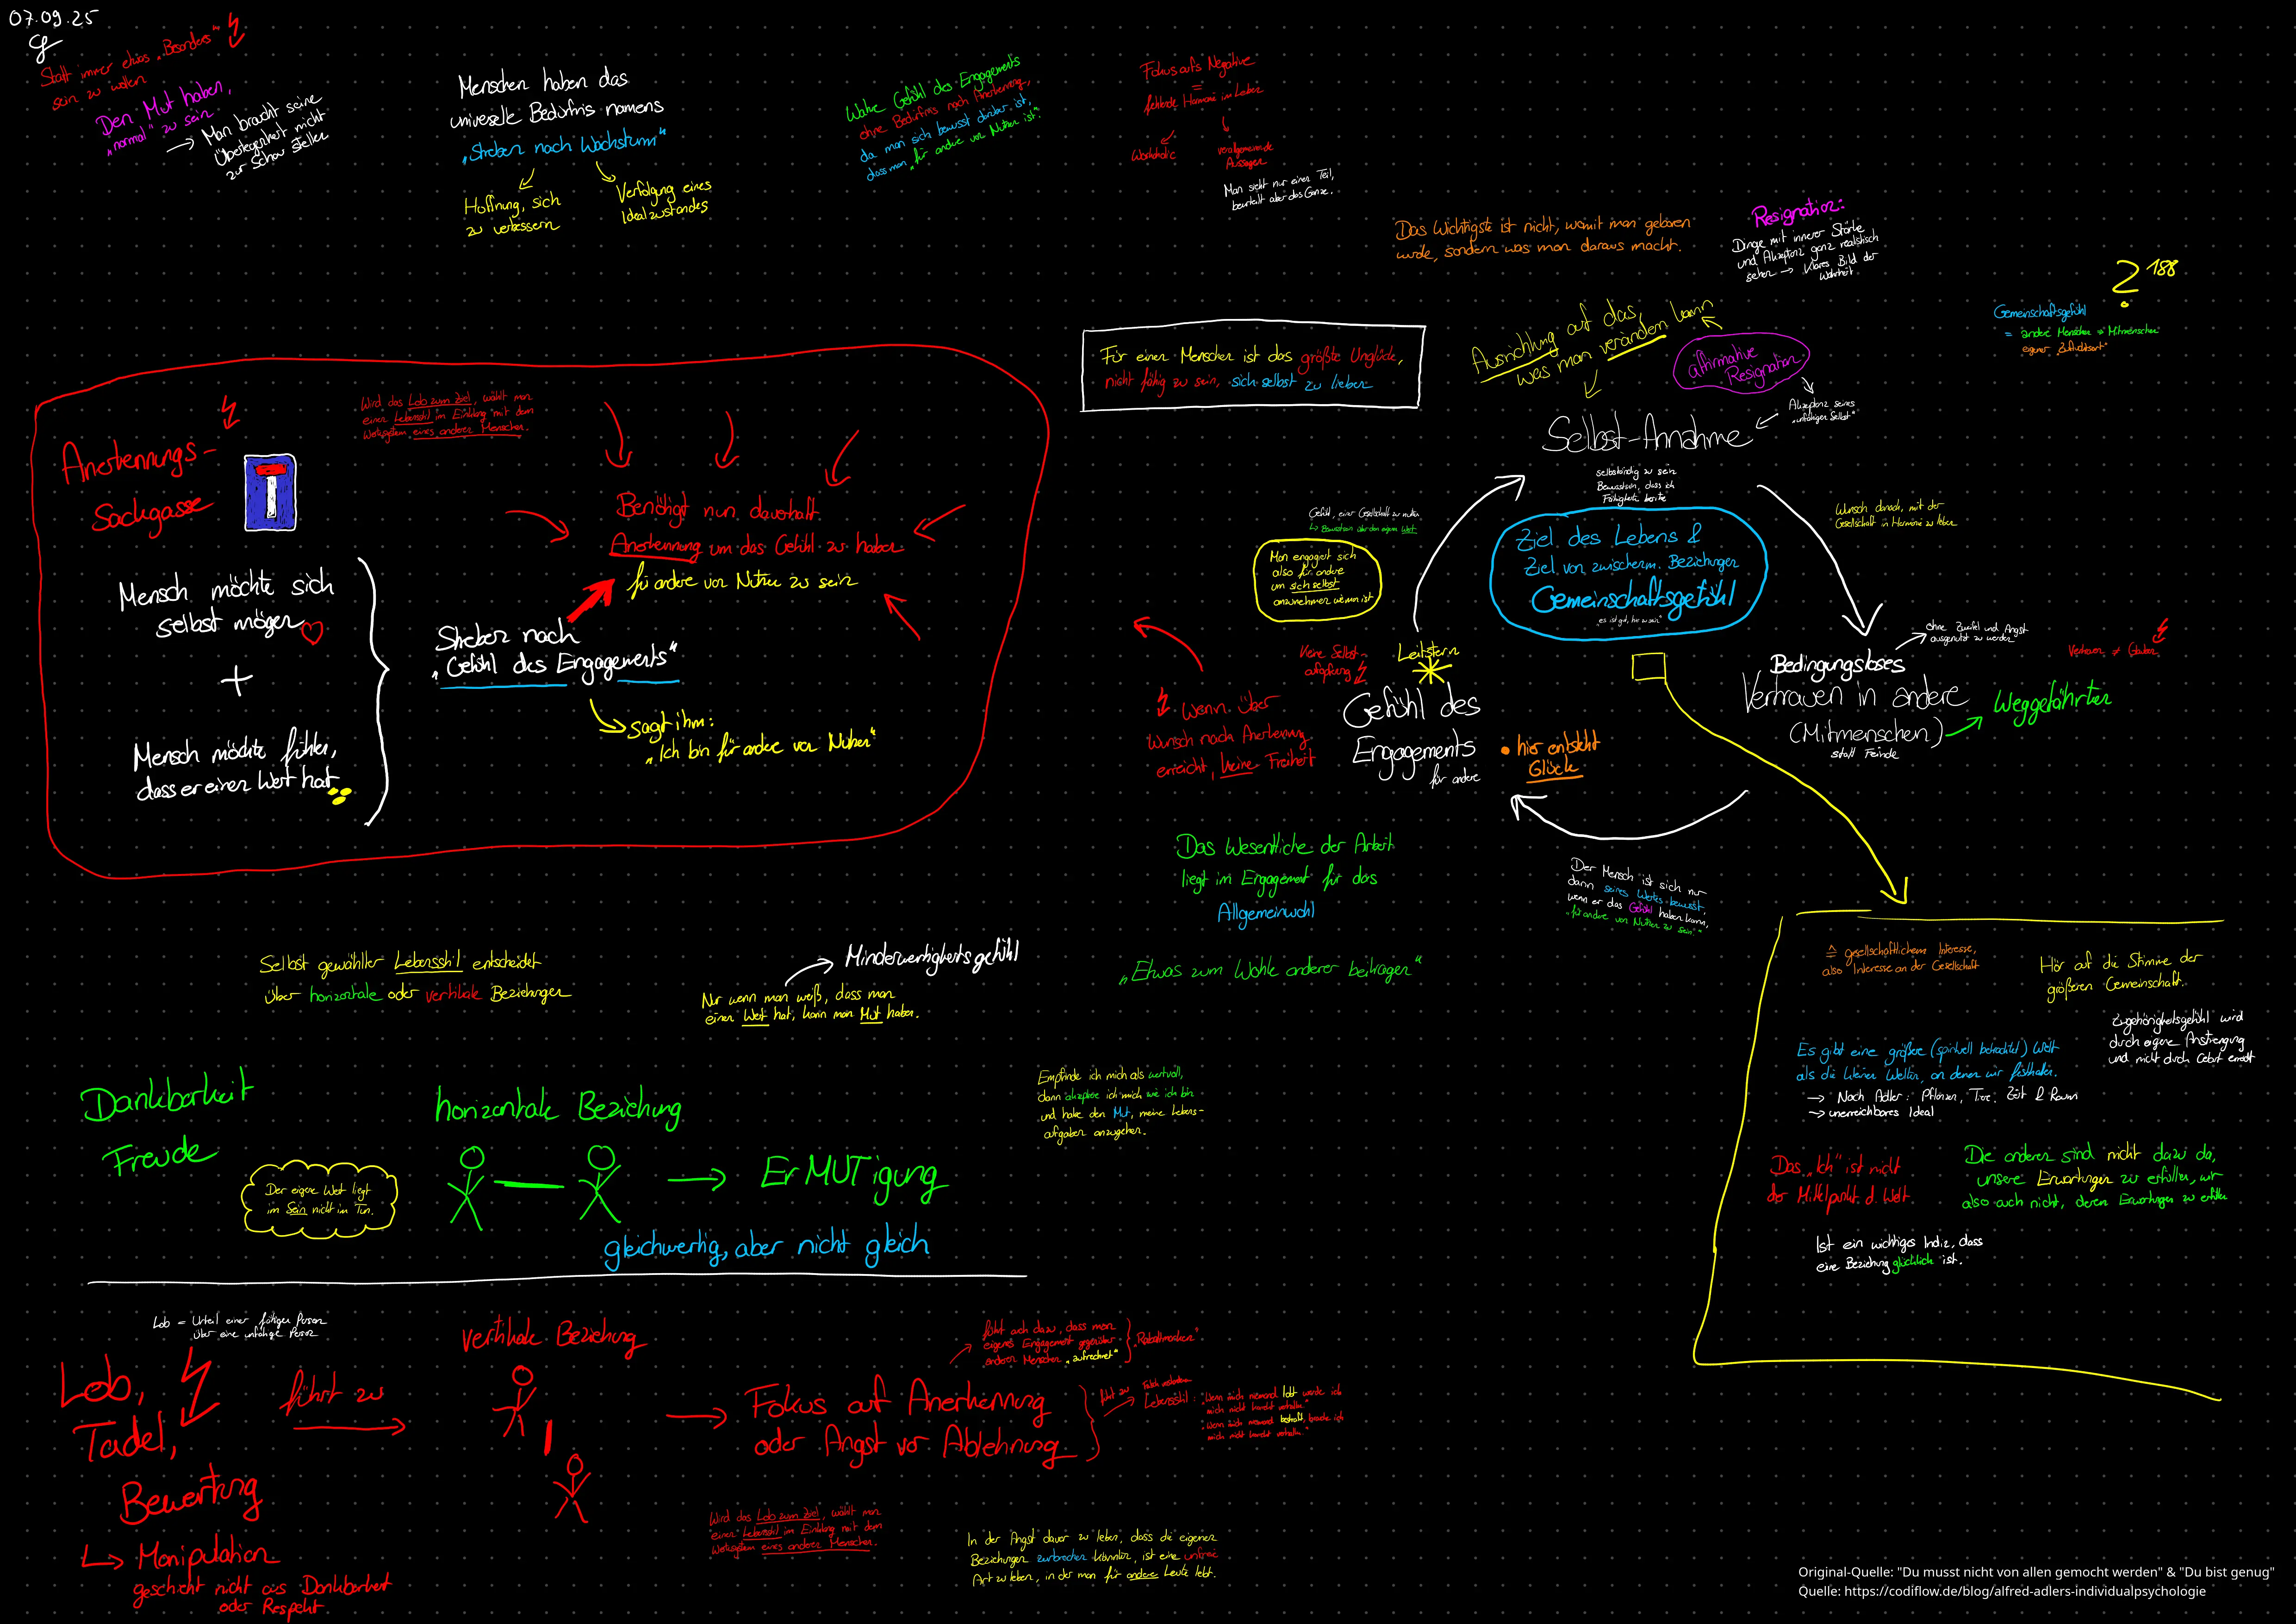 07.09.25
Statt immer etwas „Besonders"
sein zu wollen
Den Mut haben,
„normal" zu sein
→ Man braucht seine
Überlegenheit nicht
zur Schau stellen
Menschen haben das
universelle Bedürfnis namens
„Streben nach Wachstum"
Hoffnung, sich
zu verbessern
Verfolgung eines
Idealzustandes
Wahre Gefühl des Engagements
ohne Bedürfnis nach Anerkennung,
da man sich bewusst darüber ist,
dass man „für andere von Nutzen ist."
Fokus aufs Negative
=
fehlende Harmonie im Leben
Workaholic
verallgemeinernde
Aussagen
Man sieht nur einen Teil,
beurteilt aber das Ganze.
Das Wichtigste ist nicht, womit man geboren
wurde, sondern was man daraus macht.
Resignation:
Dinge mit innerer Stärke
und Akzeptanz ganz realistisch
sehen → klares Bild der
Wahrheit
? 188
Gemeinschaftsgefühl
= andere Menschen = Mitmenschen
eigener „Zufluchtsort"
Anerkennungs-
Sackgasse
Wird das Lob zum Ziel, wählt man
einen Lebensstil im Einklang mit dem
Wertesystem eines anderen Menschen.
Benötigt nun dauerhaft
Anerkennung um das Gefühl zu haben
für andere von Nutzen zu sein
Mensch möchte sich
selbst mögen
+
Mensch möchte fühlen,
dass er einen Wert hat
Streben nach
„Gefühl des Engagements"
sagt ihm:
„Ich bin für andere von Nutzen"
Für einen Menschen ist das größte Unglück,
nicht fähig zu sein, sich selbst zu lieben
Ausrichtung auf das,
was man verändern kann
affirmative
Resignation
Akzeptanz seines
„unfähigen Selbst"
Selbst-Annahme
selbständig zu sein
Bewusstsein, dass ich
Fähigkeiten besitze
Ziel des Lebens &
Ziel von zwischenm. Beziehungen
Gemeinschaftsgefühl
„es ist gut, hier zu sein"
Wunsch danach, mit der
Gesellschaft in Harmonie zu leben
Gefühl, einer Gesellschaft zu nutzen
↳ Bewusstsein über den eigenen Wert
Man engagiert sich
also für andere
um sich selbst
annehmen wie man ist
Keine Selbst-
aufopferung
Leitstern
Wenn über
Wunsch nach Anerkennung
erreicht, keine Freiheit
Gefühl des
Engagements
für andere
• hier entsteht
Glück
ohne Zweifel und Angst
ausgenutzt zu werden
Vertrauen ≠ Glauben
Bedingungsloses
Vertrauen in andere
(Mitmenschen)
statt Feinde
Weggefährten
Das Wesentliche der Arbeit
liegt im Engagement für das
Allgemeinwohl
„Etwas zum Wohle anderer beitragen"
Der Mensch ist sich nur
dann seines Wertes bewusst,
wenn er das Gefühl haben kann,
„für andere von Nutzen zu sein"
Selbst gewählter Lebensstil entscheidet
über horizontale oder vertikale Beziehungen
Minderwertigkeitsgefühl
Nur wenn man weiß, dass man
einen Wert hat, kann man Mut haben.
Empfinde ich mich als wertvoll,
dann akzeptiere ich mich wie ich bin
und habe den Mut, meine Lebens-
aufgaben anzugehen.
≙ gesellschaftlichem Interesse,
also Interesse an der Gesellschaft
Hör auf die Stimme der
größeren Gemeinschaft.
Zugehörigkeitsgefühl wird
durch eigene Anstrengung
und nicht durch Geburt erreicht
Es gibt eine größere (spirituell betrachtet) Welt
als die kleinen Welten, an denen wir festhalten.
→ Nach Adler: Pflanzen, Tiere, Zeit & Raum
→ unerreichbares Ideal
Das „Ich" ist nicht
der Mittelpunkt d. Welt.
Die anderen sind nicht dazu da,
unsere Erwartungen zu erfüllen, wir
also auch nicht, deren Erwartungen zu erfüllen
Ist ein wichtiges Indiz, dass
eine Beziehung glücklich ist.
Dankbarkeit
Freude
Der eigene Wert liegt
im Sein nicht im Tun.
horizontale Beziehung
→ ErMUTigung
gleichwertig, aber nicht gleich
Lob = Urteil einer fähigen Person
über eine unfähige Person
Lob,
Tadel,
Bewertung
führt zu
vertikale Beziehung
→ Fokus auf Anerkennung
oder Angst vor Ablehnung
führt auch dazu, dass man
eigenes Engagement gegenüber
anderen Menschen „aufrechnet"
„Rabattmarken"
führt zu
Lebensstil: „Wenn mich niemand lobt werde ich
mich nicht korrekt verhalten"
„Wenn mich niemand bestraft, brauche ich
mich nicht korrekt verhalten"
↳ Manipulation
geschieht nicht aus Dankbarkeit
oder Respekt
Wird das Lob zum Ziel, wählt man
einen Lebensstil im Einklang mit dem
Wertesystem eines anderen Menschen.
In der Angst davor zu leben, dass die eigenen
Beziehungen zerbrechen könnten, ist eine unfreie
Art zu leben, in der man für andere Leute lebt.
Original-Quelle: "Du musst nicht von allen gemocht werden" & "Du bist genug"
Quelle: https://codiflow.de/blog/alfred-adlers-individualpsychologie